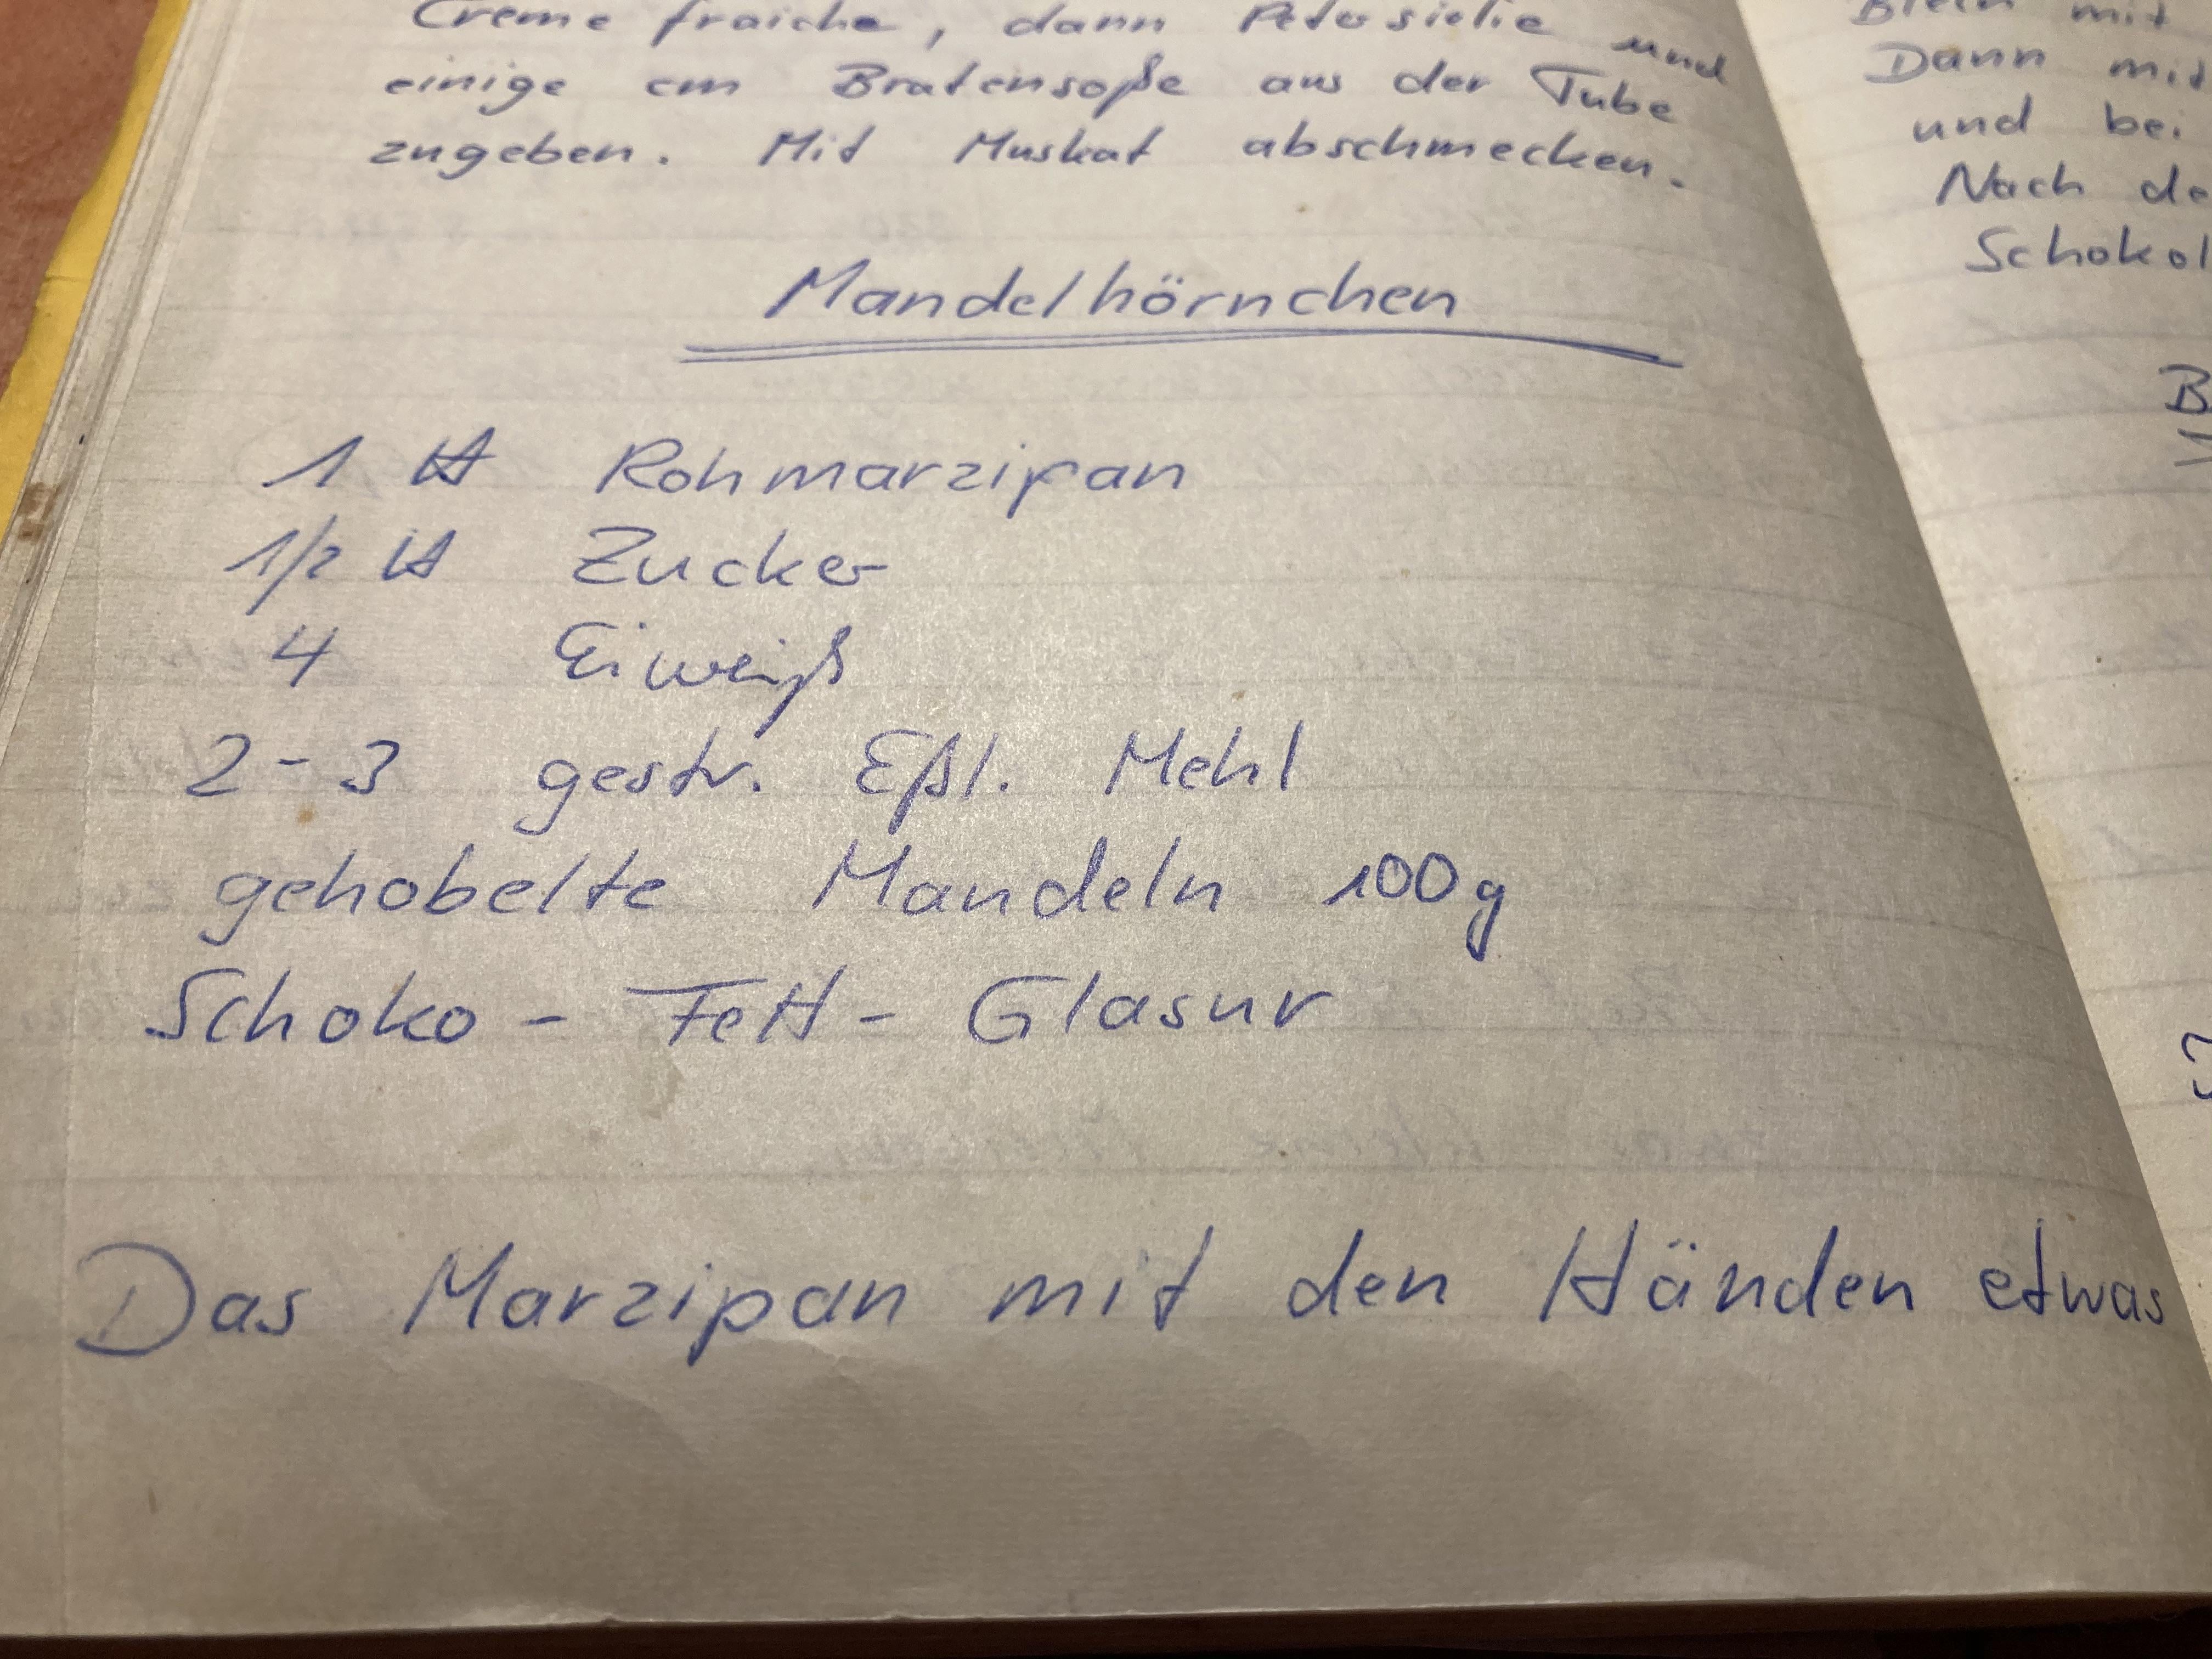 Creme fraiche, dann Petersielie und
einige cm Bratensoße aus der Tube
zugeben. Mit Muskat abschmecken.
Mandelhörnchen
1 ℔ Rohmarzipan
1/2 ℔ Zucker
4 Eiweiß
2-3 gestr. Eßl. Mehl
gehobelte Mandeln 100g
Schoko-Fett-Glasur
Das Marzipan mit den Händen etwas
mit
Dann mit
und bei
Nach de
Schokol
B
1